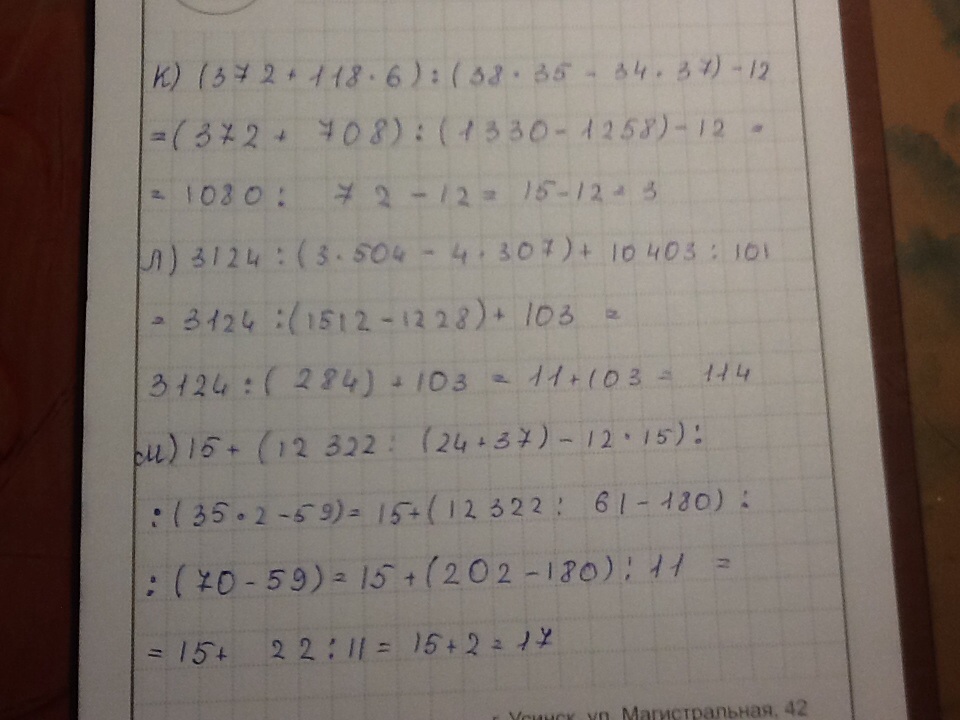 к) (372 + 118 · 6) : (38 · 35 - 34 · 37) - 12
= (372 + 708) : (1330 - 1258) - 12 =
= 1080 : 72 - 12 = 15 - 12 = 3
л) 3124 : (3 · 504 - 4 · 307) + 10 403 : 101
= 3124 : (1512 - 1228) + 103 =
3124 : (284) + 103 = 11 + 103 = 114
м) 15 + (12 322 : (24 + 37) - 12 · 15) :
: (35 · 2 - 59) = 15 + (12 322 : 61 - 180) :
: (70 - 59) = 15 + (202 - 180) : 11 =
= 15 + 22 : 11 = 15 + 2 = 17
г. Усинск, ул. Магистральная, 42